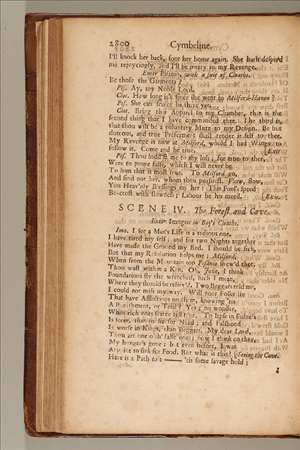 2800 Cymbeline.
I'll knock her back, foot her home again. She hath despis'd
me rejoycingly, and I'll be merry in my Revenge.
Enter Pisanio, with a suit of Cloaths.
Be those the Garments?
Pis. Ay, my Noble Lord.
Clot. How long is't since she went to Milford-Haven?
Pis. She can scarce be there yet.
Clot. Bring this Apparel to my Chamber, that is the
second thing that I have commanded thee. The third is,
that thou wilt be a voluntary Mute to my Design. Be but
duteous, and true Preferment shall tender it self to thee.
My Revenge is now at Milford, would I had Wings to
follow it. Come and be true. [Exit.
Pis. Thou bidd'st me to my loss; for true to thee,
Were to prove false, which I will never be
To him that is most true. To Milford go,
And find not her, whom thou pursuest. Flow, flow,
You Heav'nly Blessings on her: This Fool's speed
Be crost with slowness; Labour be his meed. [Exit.
SCENE IV. The Forest and Cave.
Enter Imogen in Boy's Cloaths.
Imo. I see a Man's Life is a tedious one,
I have tired my self; and for two Nights together
Have made the Ground my Bed. I should be sick,
But that my Resolution helps me: Milford,
When from the Mountain top Pisanio shew'd thee,
Thou wast within a Ken. Oh Jove, I think
Foundations fly the wretched, such I mean,
Where they should be reliev'd. Two Beggars told me,
I could not miss my way. Will poor Folks lie
That have Afflictions on them, knowing 'tis
A Punishment, or Trial? Yes; no wonder,
When rich ones scarce tell true. To lapse in Fulness
Is sorer, than to lie for Need; and Falshood
Is worse in Kings, than Beggars. My dear Lord,
Thou art one o'th' false ones; now I think on thee,
My hunger's gone; but even before, I was
At point to sink for Food. But what is this? [Seeing the Cave.
Here is a Path to't —— 'tis some savage hold;